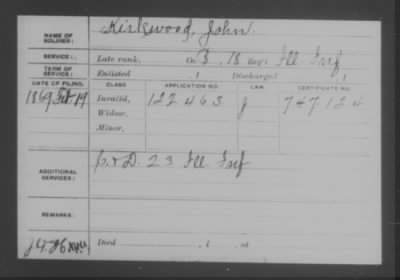 NAME OF SOLDIER: Kirkwood, John.
SERVICE: Late rank, Co. B, 18 Reg't Ill Inf
TERM OF SERVICE: Enlisted , 1 Discharged , 1
DATE OF FILING. CLASS. APPLICATION NO. LAW. CERTIFICATE NO.
1869 Feb. 19 Invalid, 122 463 J 747 124
Widow,
Minor,
ADDITIONAL SERVICES: & D. 23 Ill Inf
REMARKS:
Died , 1 , at